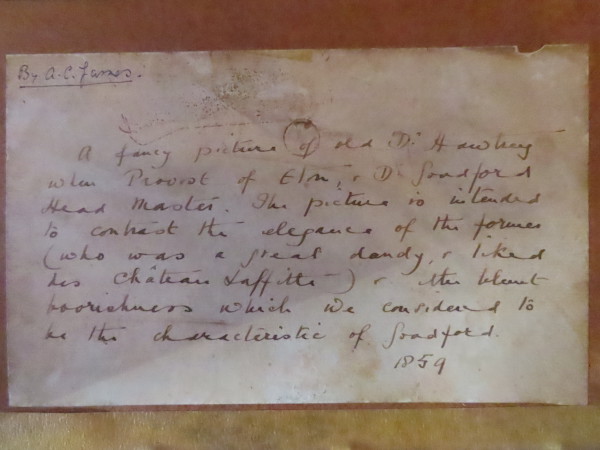 By A.C. James.
A fancy picture of old Dr Hawtrey
when Provost of Eton, & Dr Goodford
Head Master. The picture is intended
to contrast the elegance of the former
(who was a great dandy, & liked
his Château Laffitte) & the blunt
boorishness which we considered to
be the characteristic of Goodford.
1859